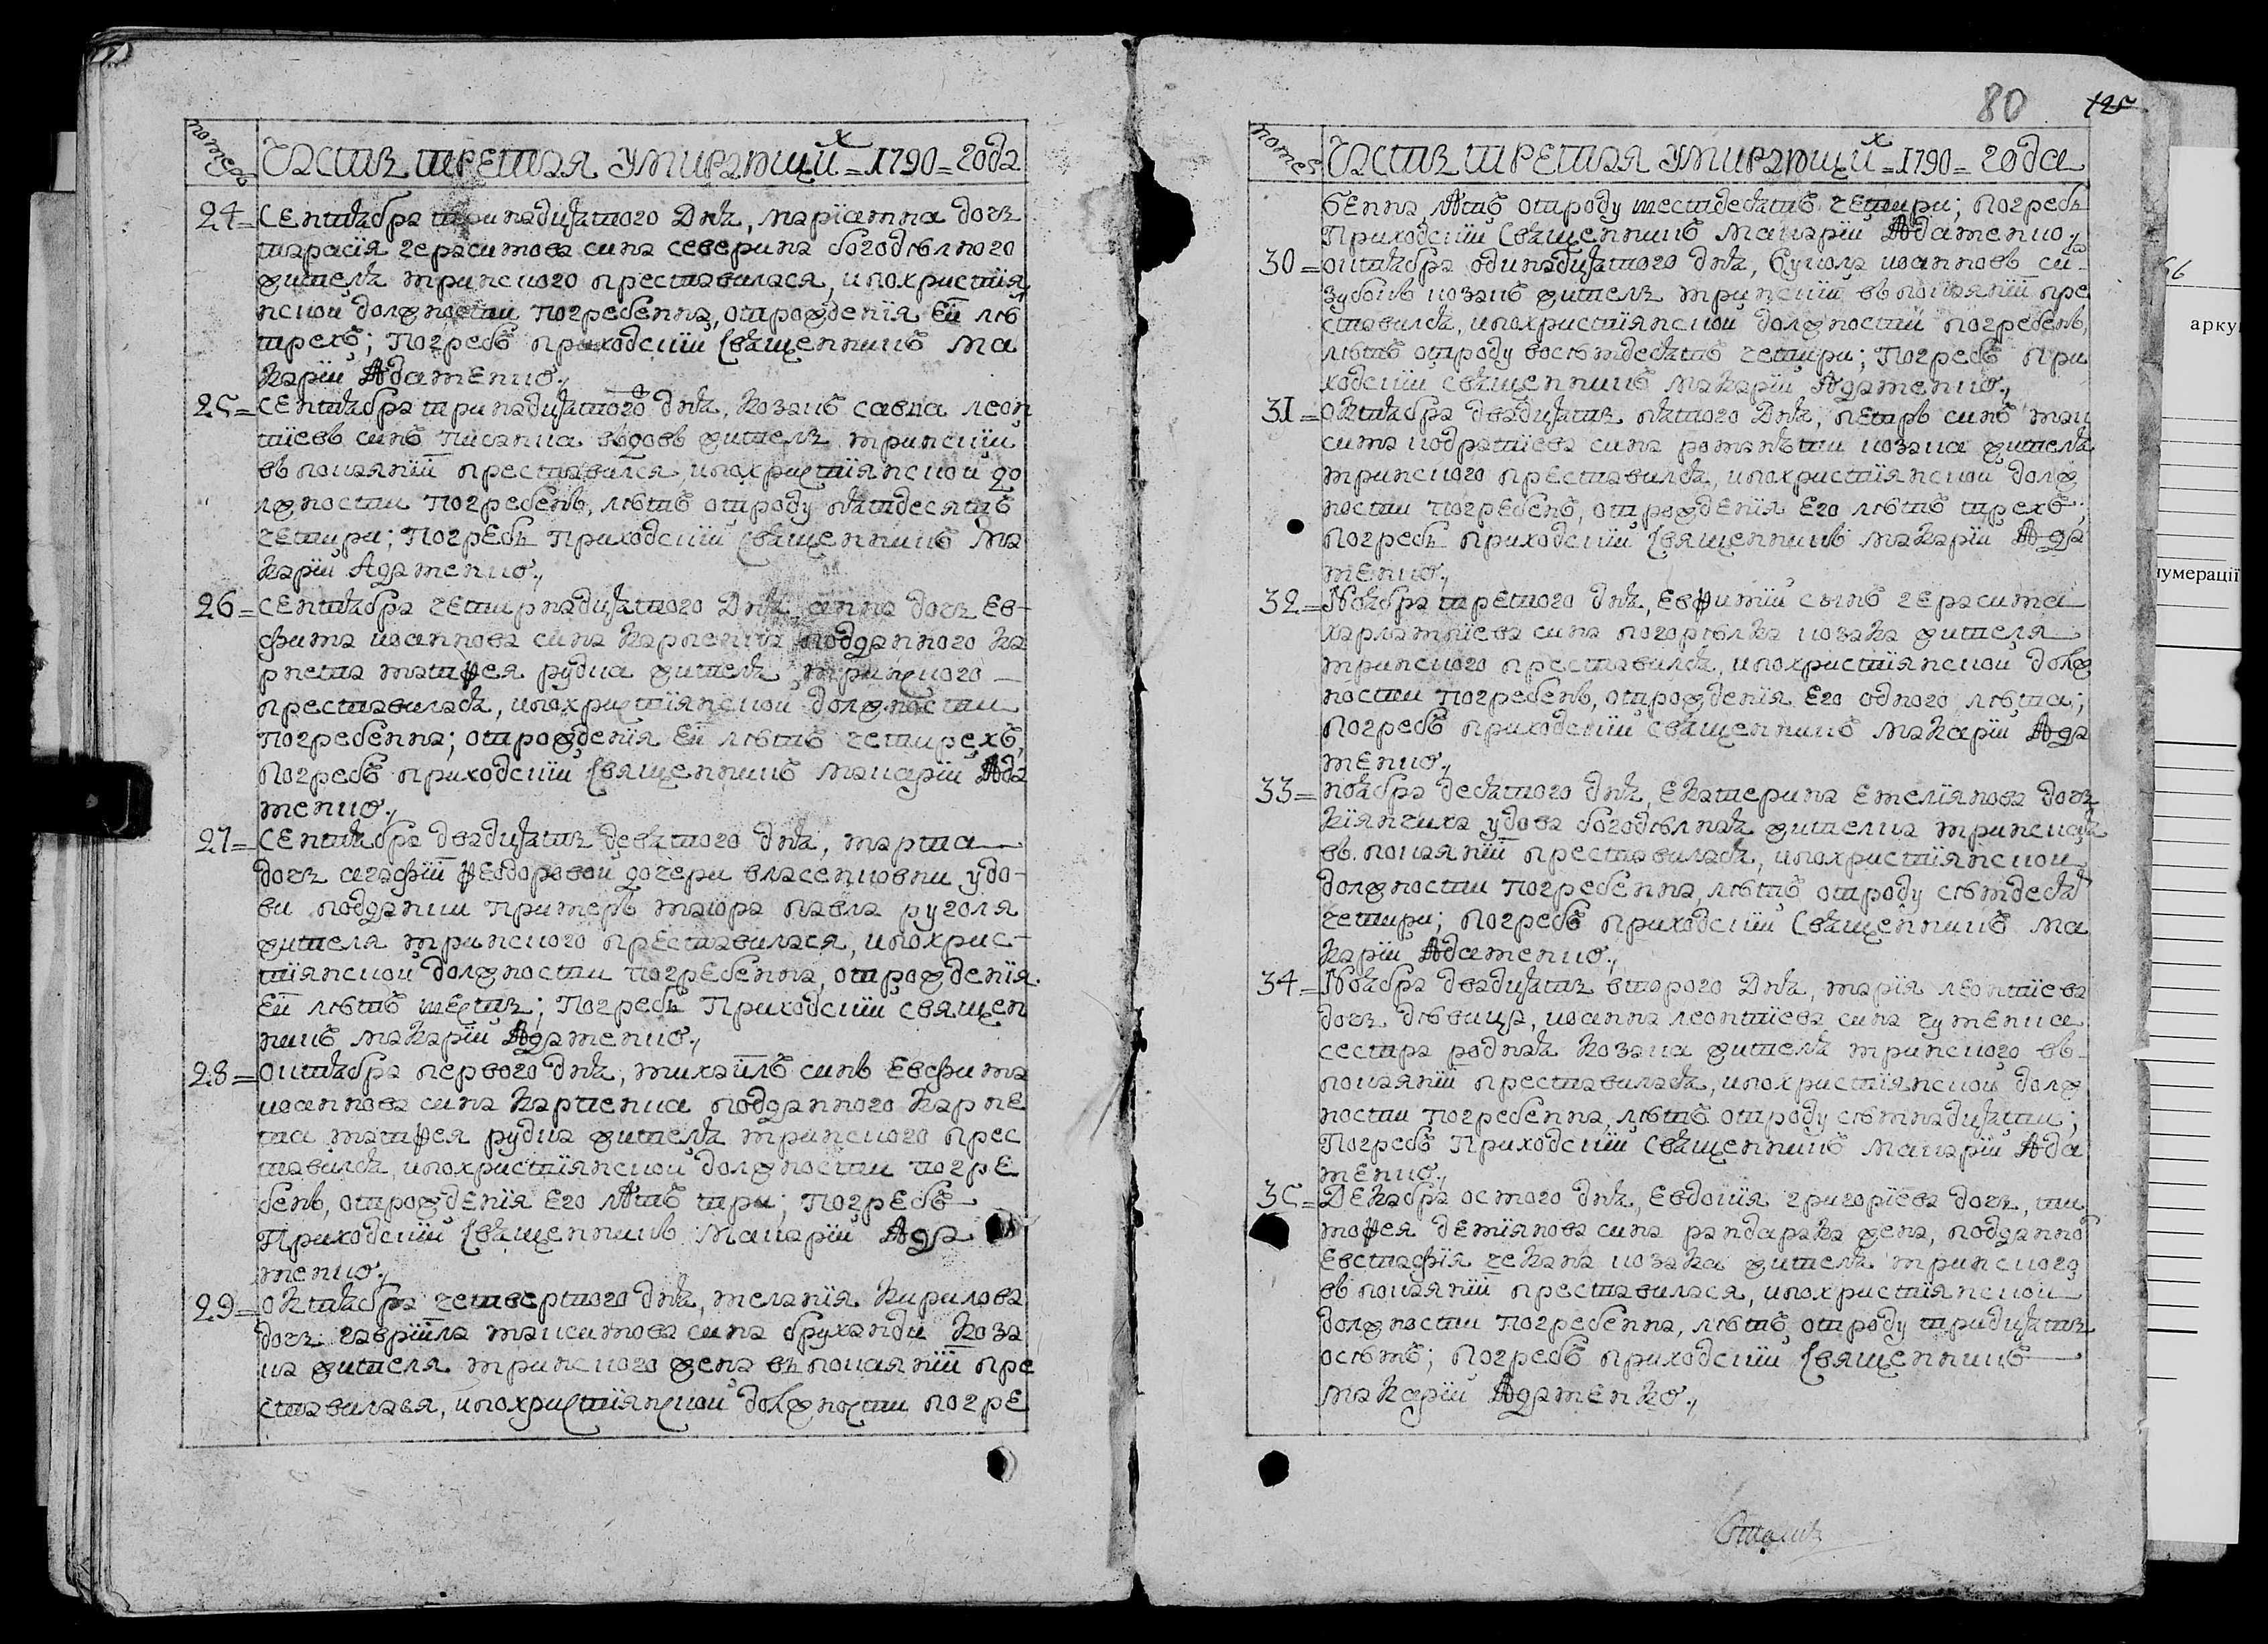 номеръ
Часть третая умирающихъ = 1790 = года
24 = Сентѧбра тринадцѧтого Днѧ, мариамна дочь
тарасія герасимова сина северина богодѣлного
жителѧ тринского преставилася, ипохристія
нской должности погребенна, отрождения ей лѣ
трехъ; Погребъ приходскій свѧщенникъ ма
карій Адаменко,,
25 = Сентѧбра тринадцѧтого днѧ, козакъ савка леон
тіевъ синъ писанка вдовъ житель тринский
въ покаяній преставился, ипохристіянской до
лжности погребенъ, лѣтъ отроду пѧтдесятъ
четири; Погребъ приходскій свѧщенникъ ма
карій Адаменко,,
26 = Сентѧбра четирнадцѧтого Днѧ, анна дочь Ев-
фима иоаннова сина карпенка подданного ка
рнета матфея рудка жителѧ тринского
преставиласѧ, ипохристіянской должности
погребенна; отрожденія ей лѣтъ четирехъ,
Погребъ приходскій священникъ макарій Ада
менко,,
27 = Сентѧбра двадцѧть девѧтого днѧ, марта
дочь агафій феодоровой дочери власенковни удо-
ви подданки примеръ маиора павла руголя
жителя тринского преставилася, ипохрис-
тіянской должности погребенна, отрожденія
ей лѣтъ шесть; Погребъ Приходскій священ
никъ макарій Адаменко,,
28 = Октѧбра первого днѧ, михаилъ синъ Евфима
иоаннова сина карпенка подданного карне
та матфея рудка жителѧ тринского прес
тавилсѧ, ипохристіянской должности погре
бенъ, отрожденія его лѣтъ три; Погребъ
Приходскій свѧщенникъ макарій Ада
менко,,
29 = Октѧбра четвертого днѧ, меланія Кирилова
дочь гавріила максимова сина бруханди коза
ка жителя тринского жена въ покаяній пре
ставилася, ипохристіянской должности погре
80 125
номеръ
Часть третая умирающихъ = 1790 = года
бенна, лѣтъ отроду шестдесѧтъ четири; погребъ
Приходскій свѧщенникъ макарій Адаменко,,
30 = Октѧбра одинадцѧтого днѧ, вукола иоанновъ синъ
зубокъ козакъ житель тринскій въ покаяній пре
ставилсѧ, ипохристіянской должности погребенъ,
лѣтъ отроду восѣмдесѧтъ четири; Погребъ при
ходскій свѧщенникъ макарій Адаменко,,
31 = Октѧбра двадцѧть пѧтого Днѧ, петръ синъ мак
сима кодратіева сина козака жителѧ
тринского преставилсѧ, ипохристіянской долж
ности погребенъ, отрожденія его лѣтъ трехъ;
погребъ приходскій священникъ макарій Ада
менко,,
32 = Ноѧбра третого днѧ, Евфимій сынъ герасима
харлампіева сина погорѣлка козака жителя
тринского преставилсѧ, ипохристіянской долж
ности погребенъ, отрожденія его одного лѣта;
погребъ приходскій свѧщенникъ макарій Ада
менко,,
33 = ноѧбра десѧтого днѧ, Екатерина емеліянова дочь
кіянчиха удова богодѣлнаѧ жителка тринскаѧ
въ покаяній преставиласѧ, ипохристіянской
должности погребенна, лѣтъ отроду сѣмдесѧт
четири; погребъ приходскій свѧщенникъ ма
карій Адаменко,,
34 = Ноѧбра двадцѧть второго Днѧ, марія леонтіева
дочь дѣвица, иоанна леонтіева сина чуменка
сестра роднаѧ козака жителѧ тринского въ
покаяній преставиласѧ, ипохристіянской долж
ности погребенна, лѣтъ отроду сѣмнадцѧти;
Погребъ Приходскій свѧщенникъ макарій Ада
менко,,
35 = Декабра осмого днѧ, Евдокія григоріева дочь, ти
мофея деміянова сина рандарака жена, подданно
Евстафія чекана козака жителѧ тринского
въ покаяній преставилася, ипохристіянской
должности погребенна, лѣтъ отроду тридцѧть
осѣмъ; Погребъ приходскій священникъ
макарій Адаменко,,